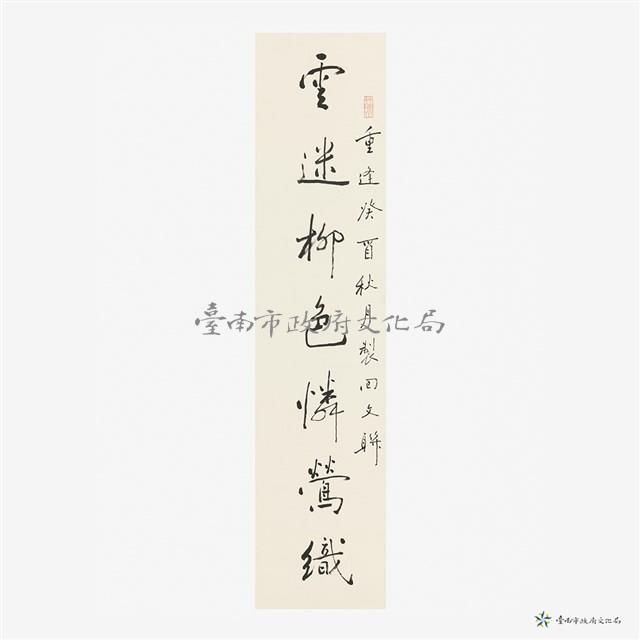 重逢癸酉秋月製回文聯
雲迷柳色憐鶯織
臺南市政府文化局
臺南市政府文化局